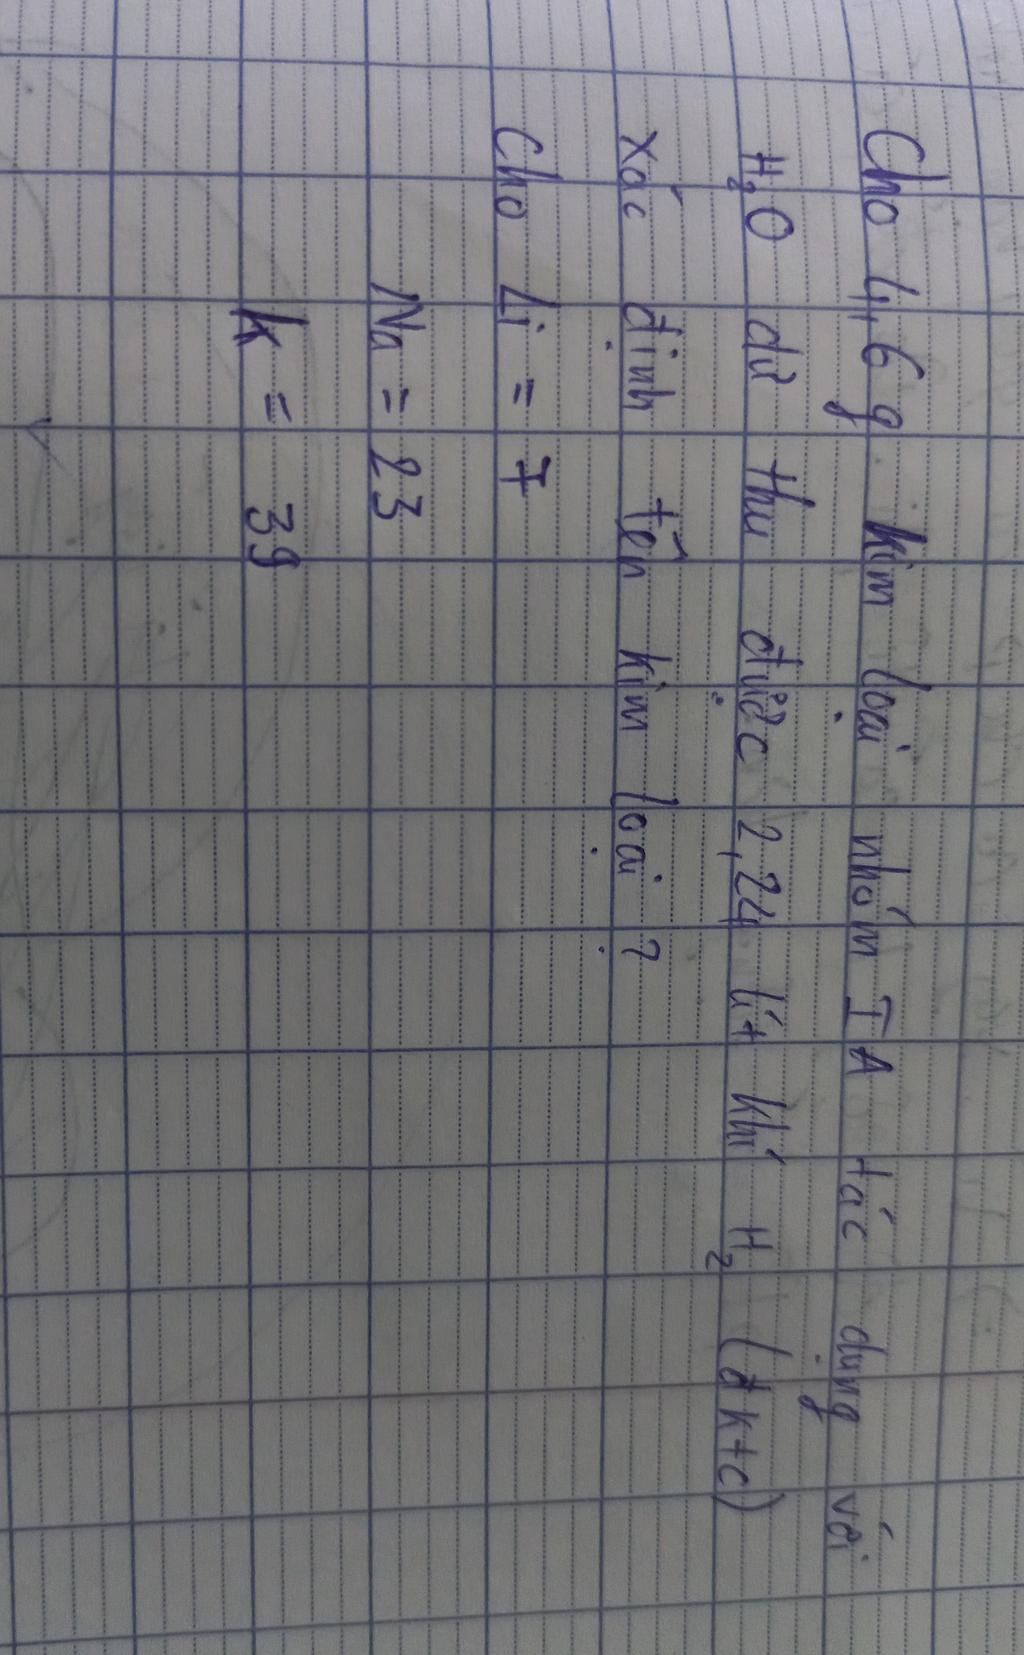 Cho 4,6 g kim loại nhóm IA tác dụng với
H₂O dư thu được 2,24 lít khí H₂ (đktc)
Xác định tên kim loại ?
Cho Li = 7
Na = 23
K = 39